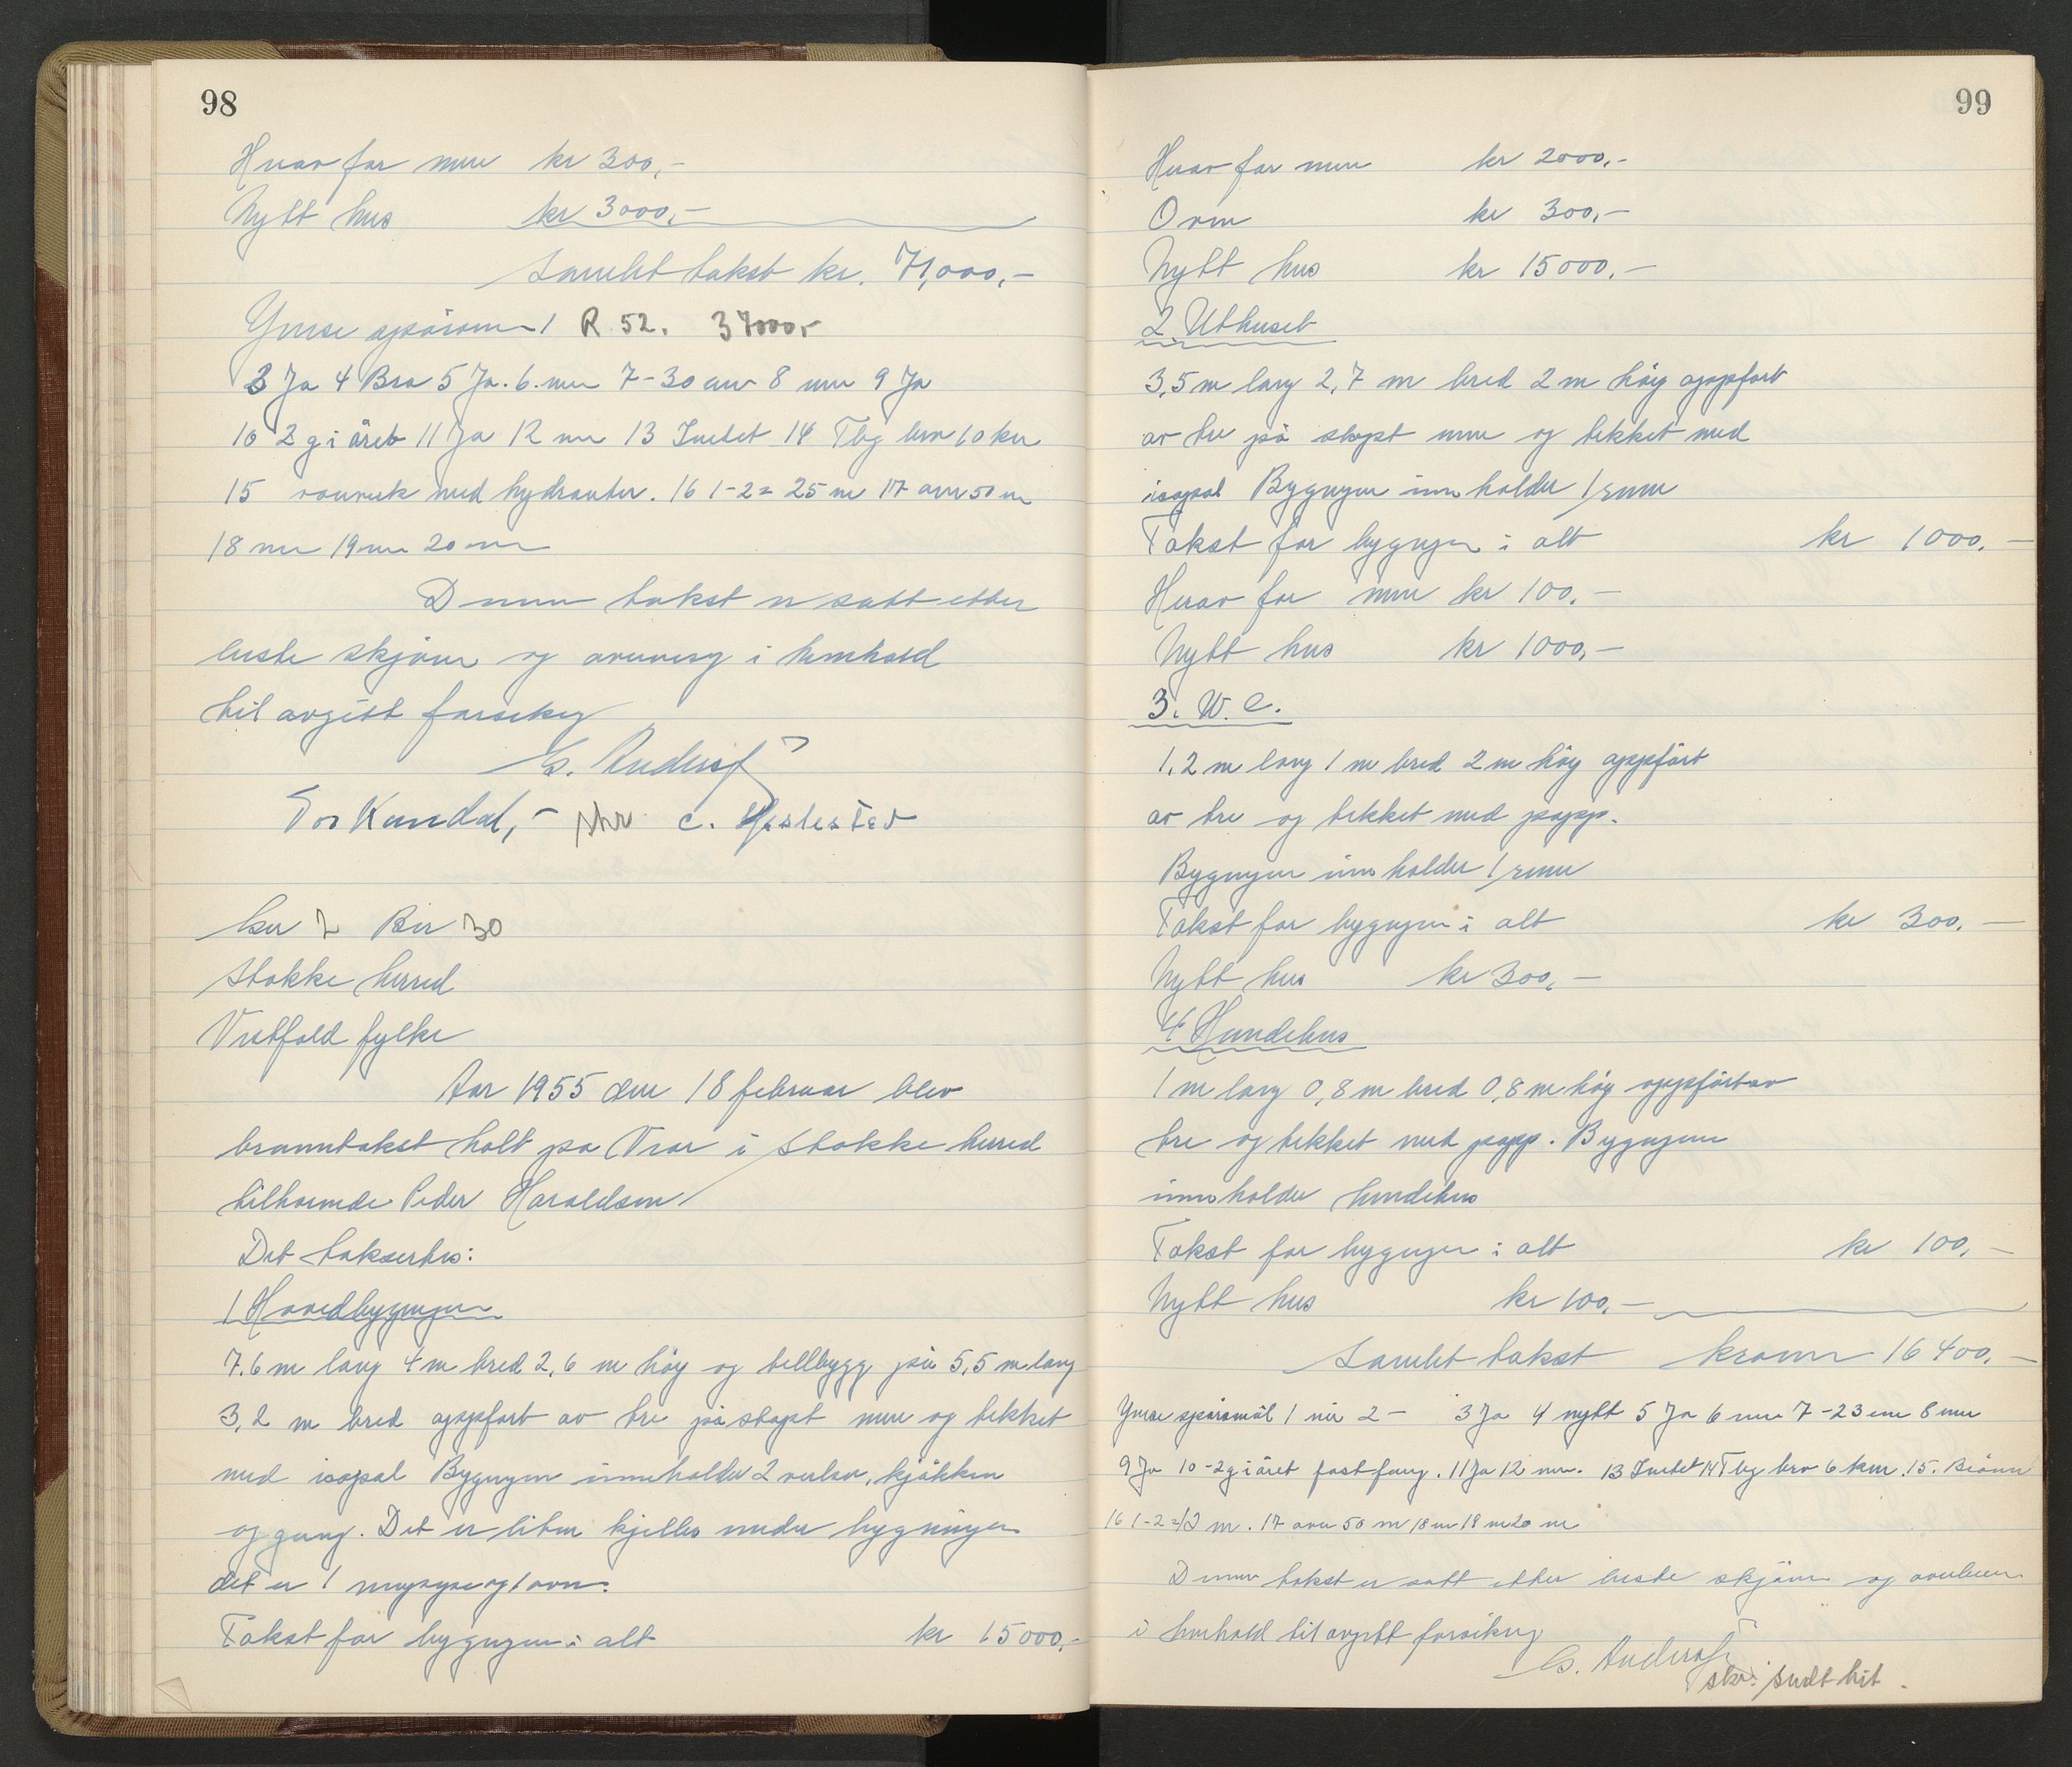 98
Herav for mur kr 300,-
Nytt hus kr 3000,-
Samlet takst kr. 71,000,-
Ymse spørsm 1 R 52. 37000,-
3 Ja 4 Bra 5 Ja. 6. nei 7-30 8 nei 9 Ja
10 2 g i året 11 Ja 12 nei 13 Intet 14 Tbg brv 10 km
15 vannverk med hydranter. 16 1-2= 25 m 17 over 50 m
18 nei 19 nei 20 nei
Denne takst er satt etter
beste skjønn og i henhold
til avgitt forsikring
G. Anders
Kandal,- C.
Gnr 2 Bnr 30
Stokke herred
Vestfold fylke
Aar 1955 den 18 februar blev
branntakst holt på Vear i Stokke herred
tilhørende Peder Haraldsen
Det taksertes:
1 Hovedbygningen
7.6 m lang 4 m bred 2,6 m høy og tilbygg på 5,5 m lang
3,2 m bred oppført av tre på støpt mur og tekket
med isopal Bygningen inneholder 2 verelser, kjøkken
og gang. Det er liten kjeller under bygningen
det er 1 murpipe og 1 ovn.
Takst for bygningen i alt kr 15000,-
99
Herav for mur kr 2000,-
Ovn kr 300,-
Nytt hus kr 15000,-
2 Uthuset
3,5 m lang 2,7 m bred 2 m høy oppført
av tre på støpt mur og tekket med
isopal Bygningen inneholder 1 rum
Takst for bygningen i alt kr 1000,-
Herav for mur kr 100,-
Nytt hus kr 1000,-
3. W.C.
1,2 m lang 1 m bred 2 m høy oppført
av tre og tekket med papp.
Bygningen inneholder 1 rum
Takst for bygningen i alt kr 300,-
Nytt hus kr 300,-
4 Hundehus
1 m lang 0,8 m bred 0,8 m høy oppført av
tre og tekket med papp. Bygningen
inneholder hundehus
Takst for bygningen i alt kr 100,-
Nytt hus kr 100,-
Samlet takst kroner 16400,-
Ymse spørsmål 1 nei 2- 3 Ja 4 nytt 5 Ja 6 nei 7-23 8 nei
9 Ja 10-2 g i året . 11 Ja 12 nei. 13 Intet 14 Tbg brv 6 km. 15. Brønn
16 1-2=12 m. 17 over 50 m 18 nei 19 nei 20 nei
Denne takst er satt etter beste skjønn og
i henhold til avgitt forsikring
G. Anders